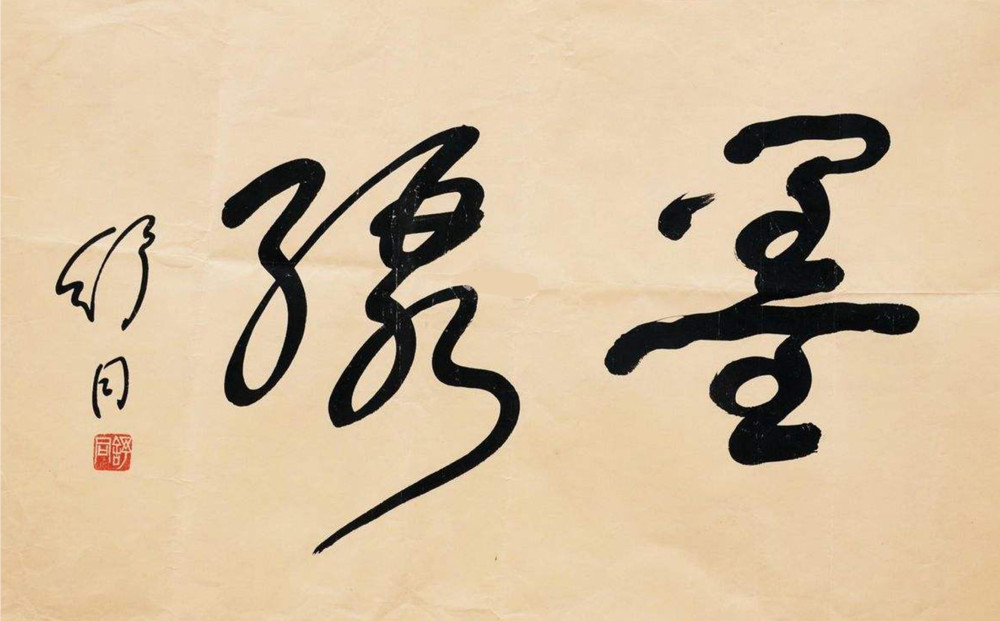 墨緣
舒同
舒同